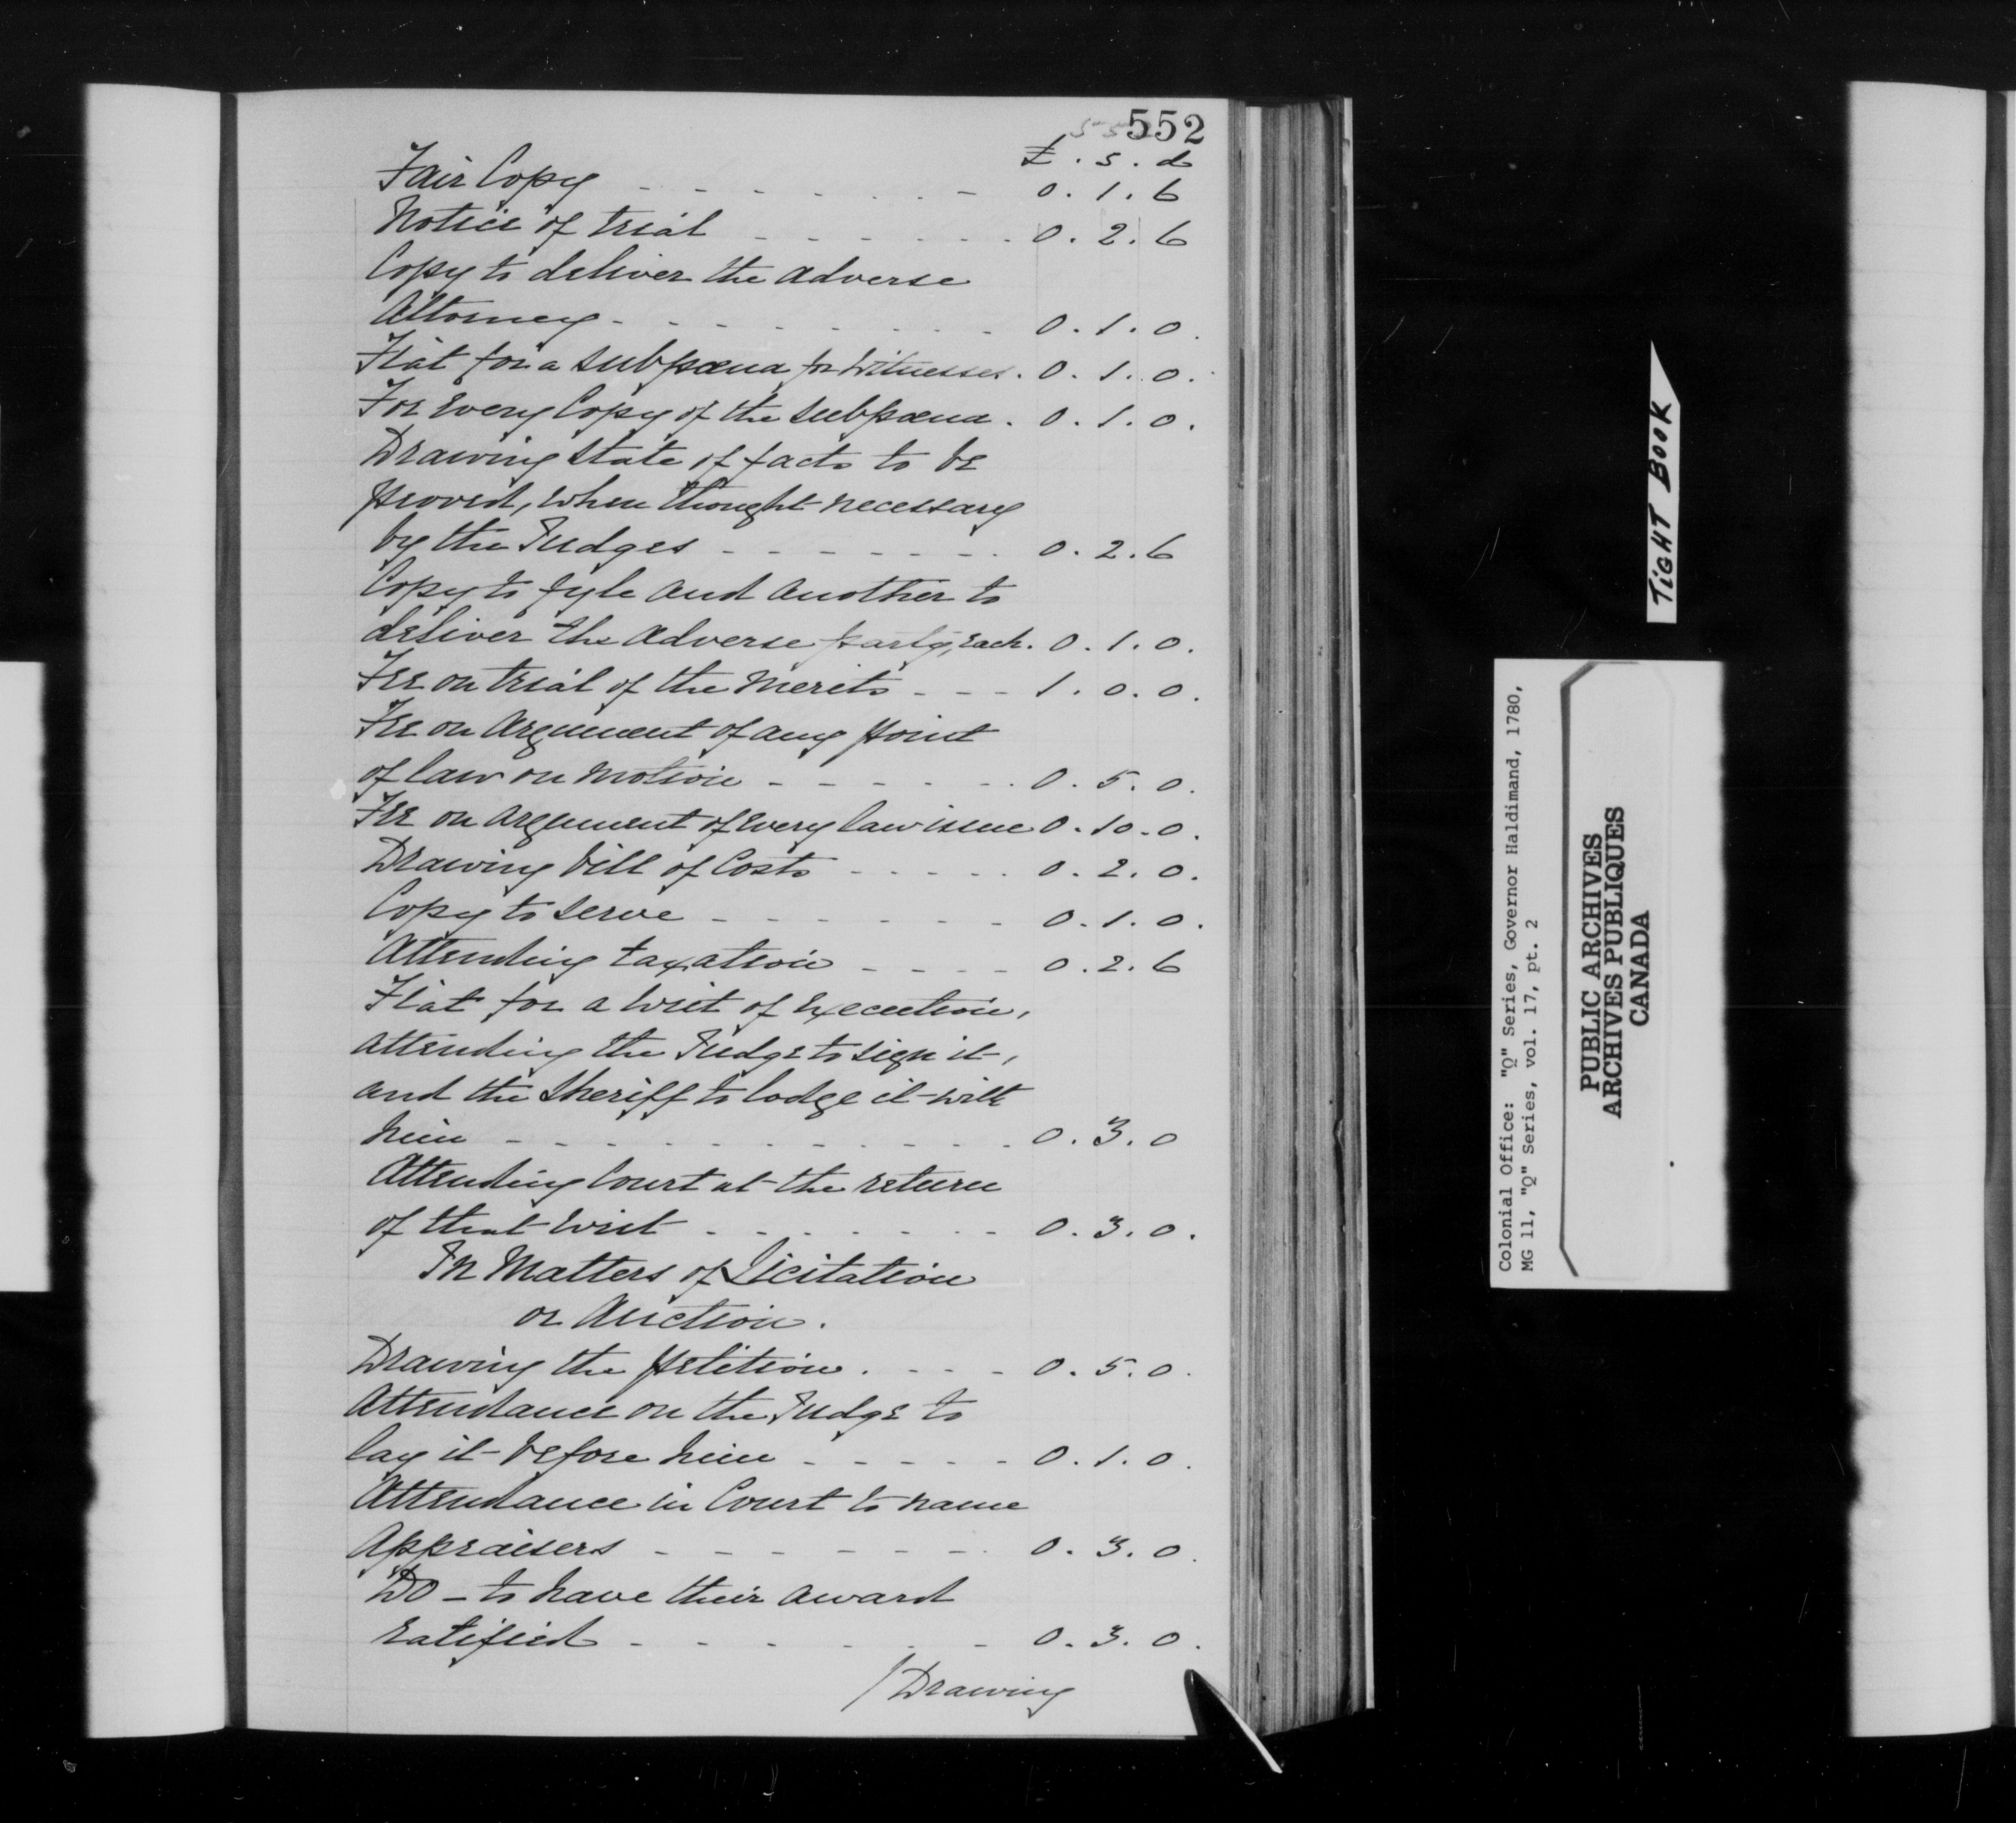 552
£ . s . d
Fair Copy - - - - - - - 0 . 1 . 6
Notice of trial - - - - - - 0 . 2 . 6
Copy to deliver the adverse
Attorney - - - - - - - - 0 . 1 . 0 .
Fiat for a subpœna for Witnesses . 0 . 1 . 0 .
For every Copy of the subpœna . 0 . 1 . 0 .
Drawing state of facts to be
proved, when thought necessary
by the Judges - - - - - - - 0 . 2 . 6
Copy to fyle and another to
deliver the adverse party, each . 0 . 1 . 0 .
Fee on trial of the merits - - - 1 . 0 . 0 .
Fee on Argument of any point
of law on motion - - - - - - 0 . 5 . 0 .
Fee on argument of every law issue 0 . 10 . 0 .
Drawing bill of Costs - - - - - 0 . 2 . 0 .
Copy to serve - - - - - - - 0 . 1 . 0 .
Attending taxation - - - - 0 . 2 . 6
Fiat for a writ of execution,
attending the Judge to sign it,
and the Sheriff to lodge it with
him - - - - - - - - - - - 0 . 3 . 0
Attending Court at the return
of that writ - - - - - - - 0 . 3 . 0 .
In Matters of Licitation
or Auction.
Drawing the petition . - - - 0 . 5 . 0 .
Attendance on the Judge to
lay it before him - - - - - 0 . 1 . 0 .
Attendance in Court to name
Appraisers - - - - - - - 0 . 3 . 0 .
Do - to have their award
ratified - - - - - - - 0 . 3 . 0 .
/Drawing
TIGHT BOOK
Colonial Office: "Q" Series, Governor Haldimand, 1780,
MG 11, "Q" Series, vol. 17, pt. 2
PUBLIC ARCHIVES
ARCHIVES PUBLIQUES
CANADA